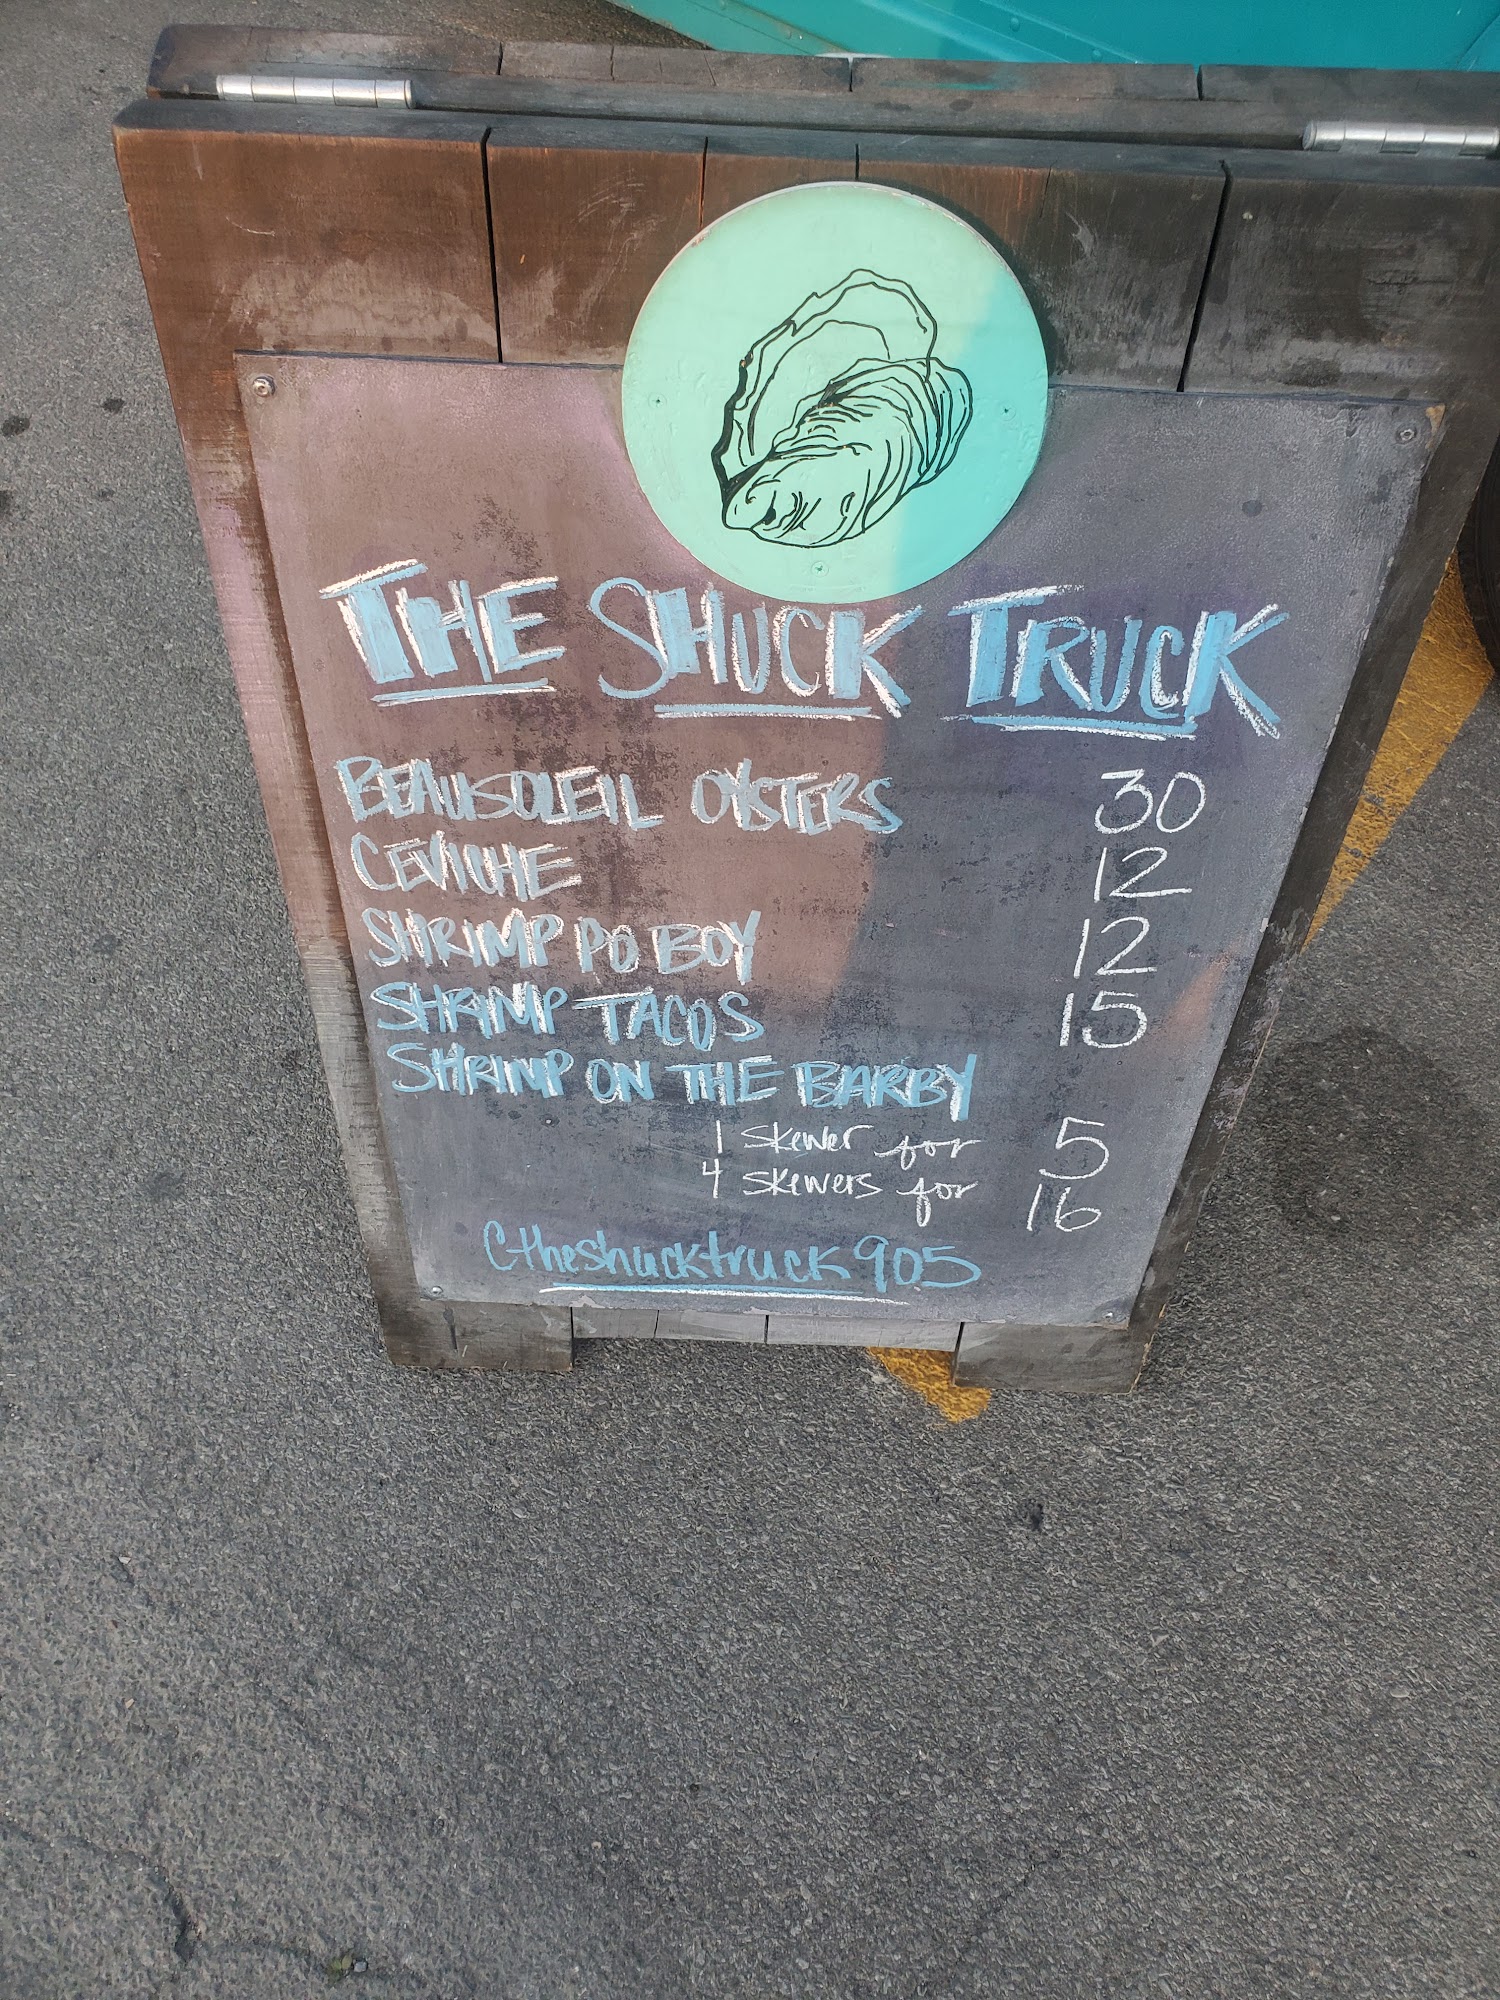 THE SHUCK TRUCK
BEAUSOLEIL OYSTERS 30
CEVICHE 12
SHRIMP PO BOY 12
SHRIMP TACOS 15
SHRIMP ON THE BARBY
1 skewer for 5
4 skewers for 16
@theshucktruck905